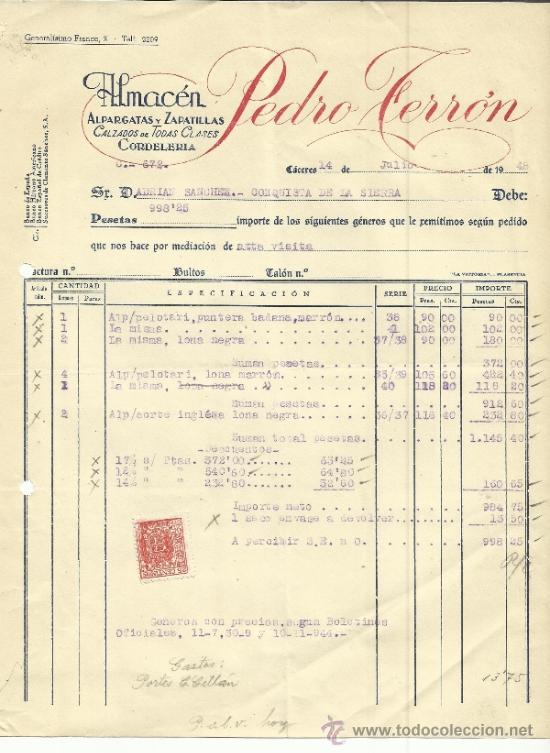 Generalísimo Franco, 8 - Tel! 2209
Almacén
ALPARGATAS Y ZAPATILLAS
CALZADOS DE TODAS CLASES
CORDELERIA
Pedro Terrón
Banco de España
Banco Hispano Americano
Banco Español de Crédito
Sucesores de Clemente Sánchez, S. A.
C.- 672.
Cáceres 14 de Julio de 1945
Sr. D. ADRIAN SANCHEZ.- CONQUISTA DE LA SIERRA Debe:
Pesetas 998'25 importe de los siguientes géneros que le remitimos según pedido
que nos hace por mediación de ntta visita
Factura n.º Bultos Talón n.º "LA VICTORIA".-PLASENCIA
CANTIDAD ESPECIFICACIÓN SERIE PRECIO IMPORTE
Pares Ptas. Cts. Pesetas Cts.
x 1 Alp/pelotari, puntera badana, marrón.... 38 90 00 90 00
x 1 La misma. 41 102 00 102 00
x 2 La misma, lona negra 37/38 90 00 180 00
Suman pesetas. 372 00
x 4 Alp/pelotari, lona marrón. 35/39 105 60 422 40
x 1 La misma, lona negra 40 118 20 118 20
Suman pesetas 912 60
x 2 Alp/corte inglésa lona negra. 36/37 116 40 232 80
Suman total pesetas. 1.145 40
Descuentos
x 17% s/ Ptas. 372'00 63'25
x 12% " " 540'60 64'80
x 14% " " 232'80 32'60 160 65
Importe neto 984 75
x 1 saco envase a devolver 13 50
A percibir S.E. u O. 998 25
Generos con precios, segun Boletines
Oficiales, 11-7, 30-9 y 10-11-944.-
Gastos:
Portes 13'75
hoy
www.todocoleccion.net